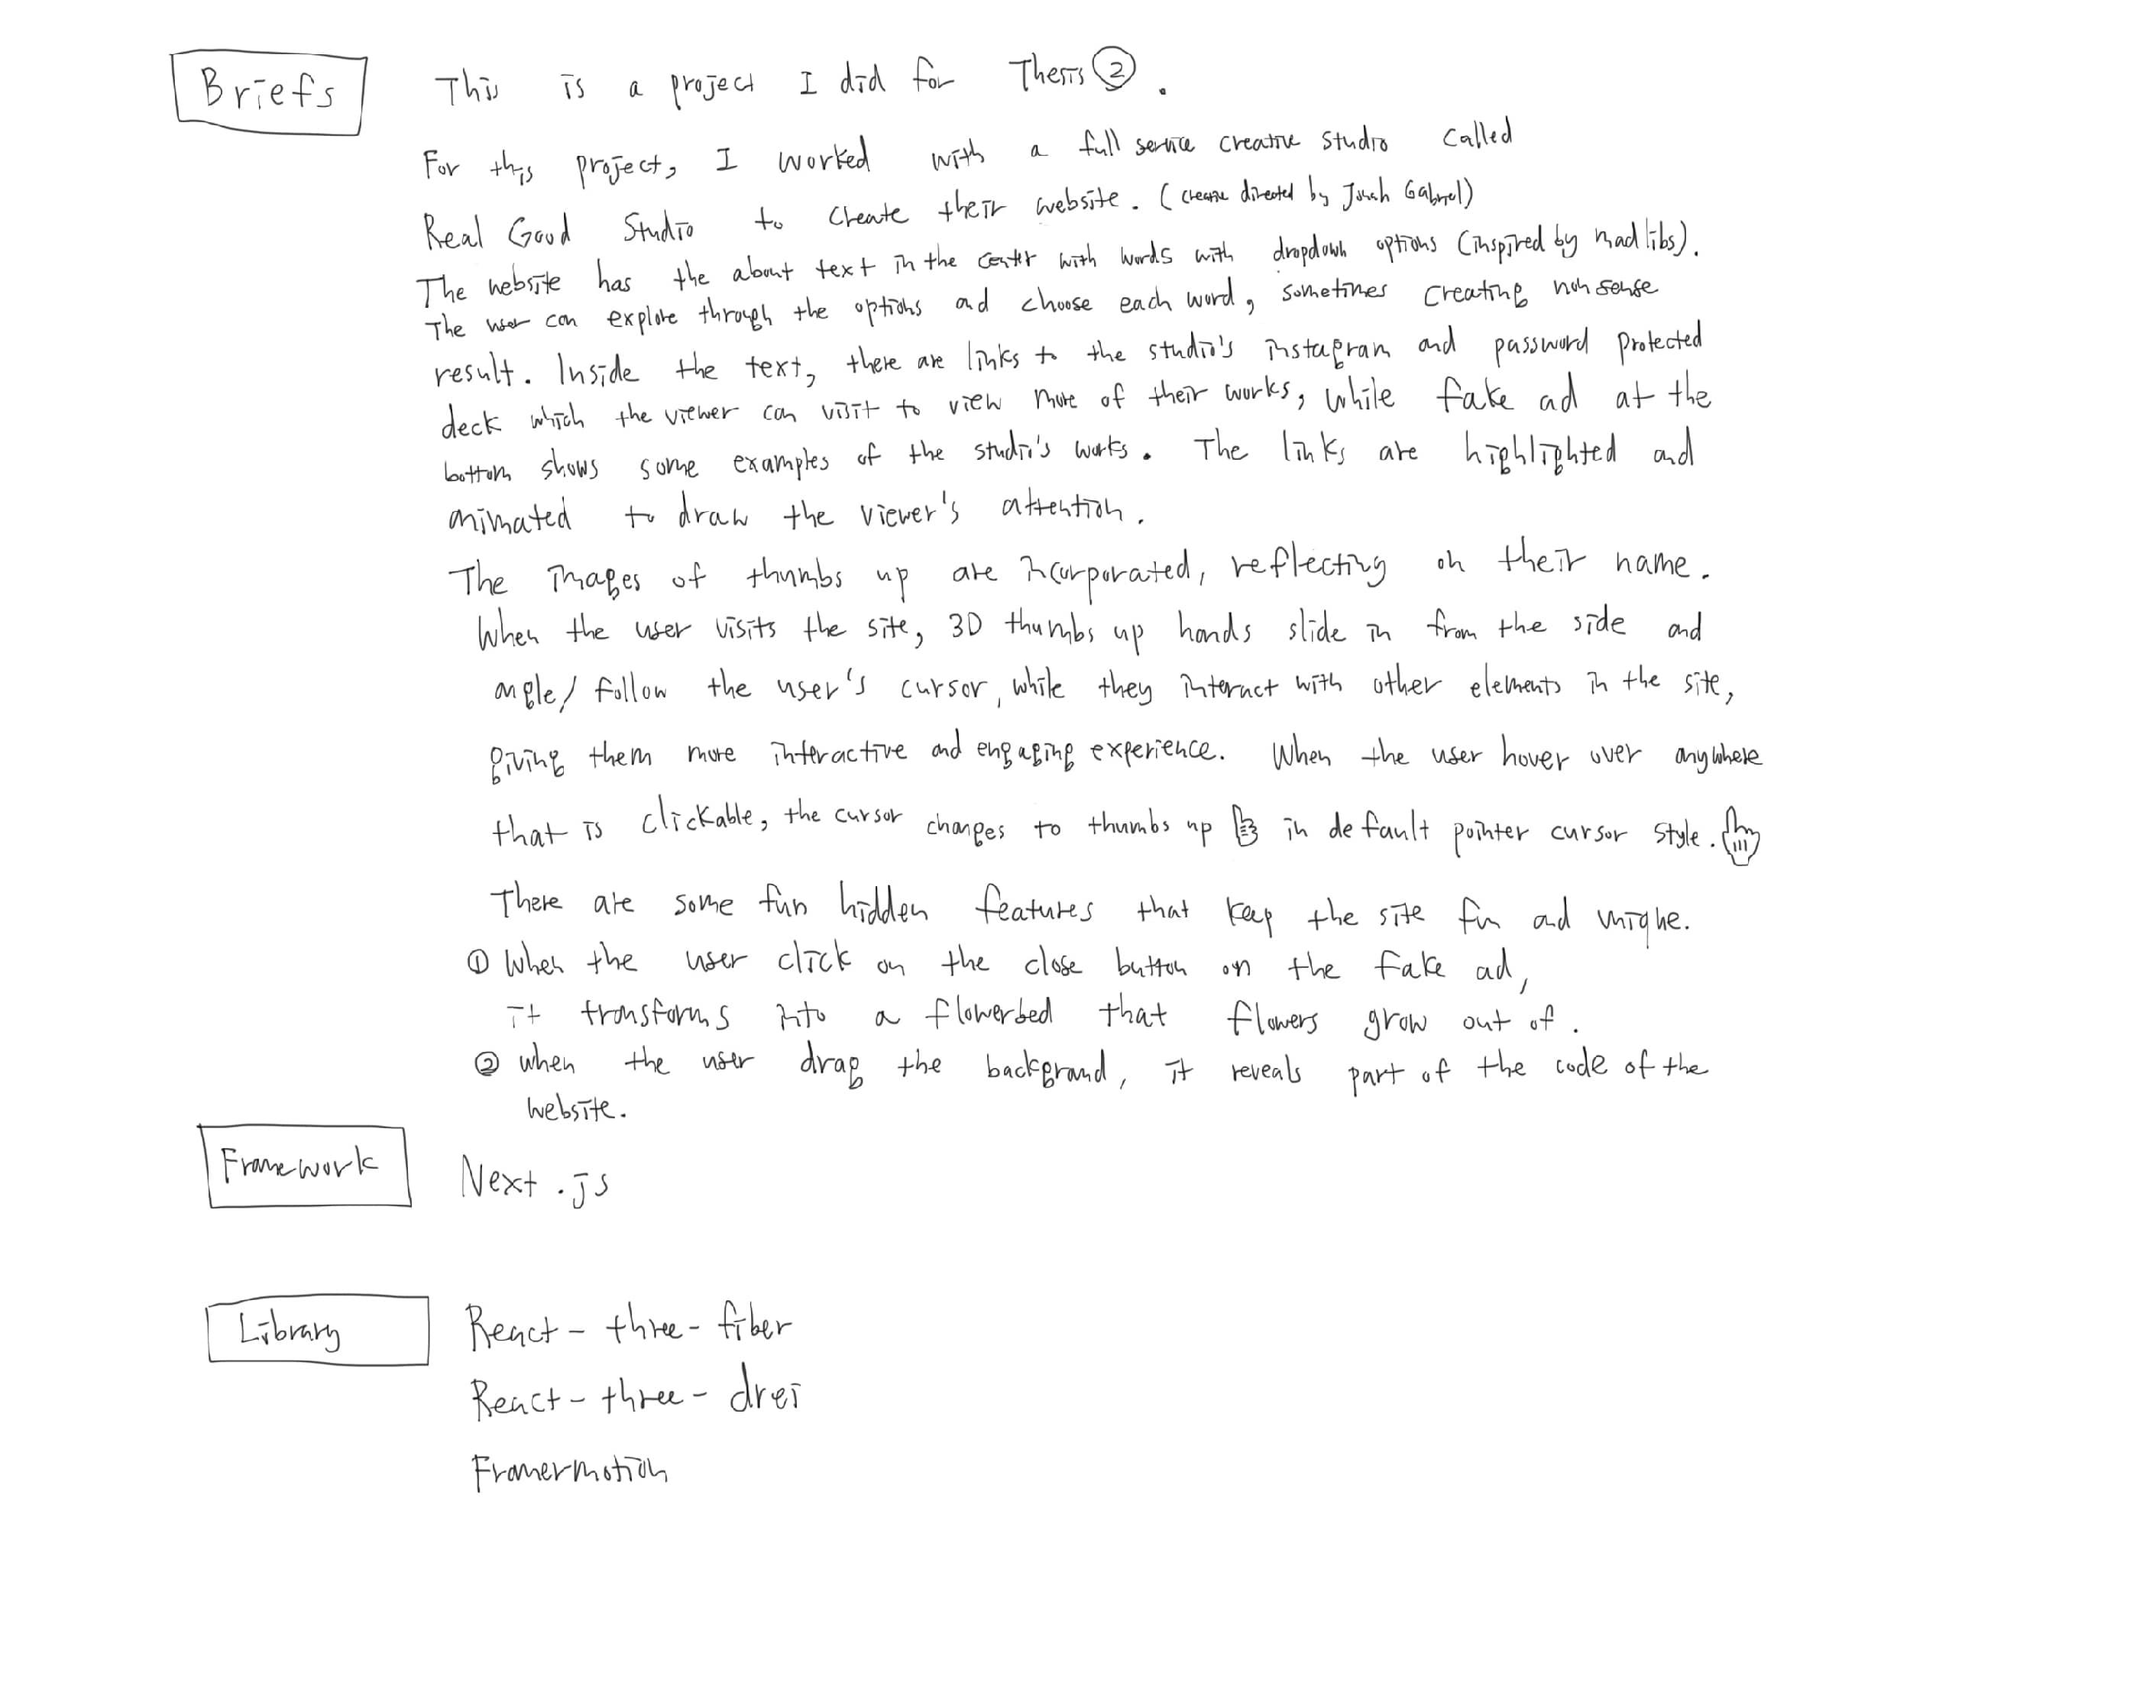 Briefs
This is a project I did for Thesis ②.
For this project, I worked with a full service creative studio called
Real Good Studio to create their website. (creative directed by Gabriel)
The website has the about text in the center with words with dropdown options (inspired by mad libs).
The user can explore through the options and choose each word, sometimes creating nonsense
result. Inside the text, there are links to the studio's instagram and password protected
deck which the viewer can visit to view more of their works, while fake ad at the
bottom shows some examples of the studio's works. The links are highlighted and
animated to draw the viewer's attention.
The images of thumbs up are incorporated, reflecting on their name.
When the user visits the site, 3D thumbs up hands slide in from the side and
angle/follow the user's cursor, while they interact with other elements in the site,
giving them more interactive and engaging experience. When the user hover over anywhere
that is clickable, the cursor changes to thumbs up in default pointer cursor style.
There are some fun hidden features that keep the site fun and unique.
① When the user click on the close button on the fake ad,
it transforms into a flowerbed that flowers grow out of.
② when the user drag the background, it reveals part of the code of the
website.
Framework
Next.js
Library
React-three-fiber
React-three-drei
Framermotion